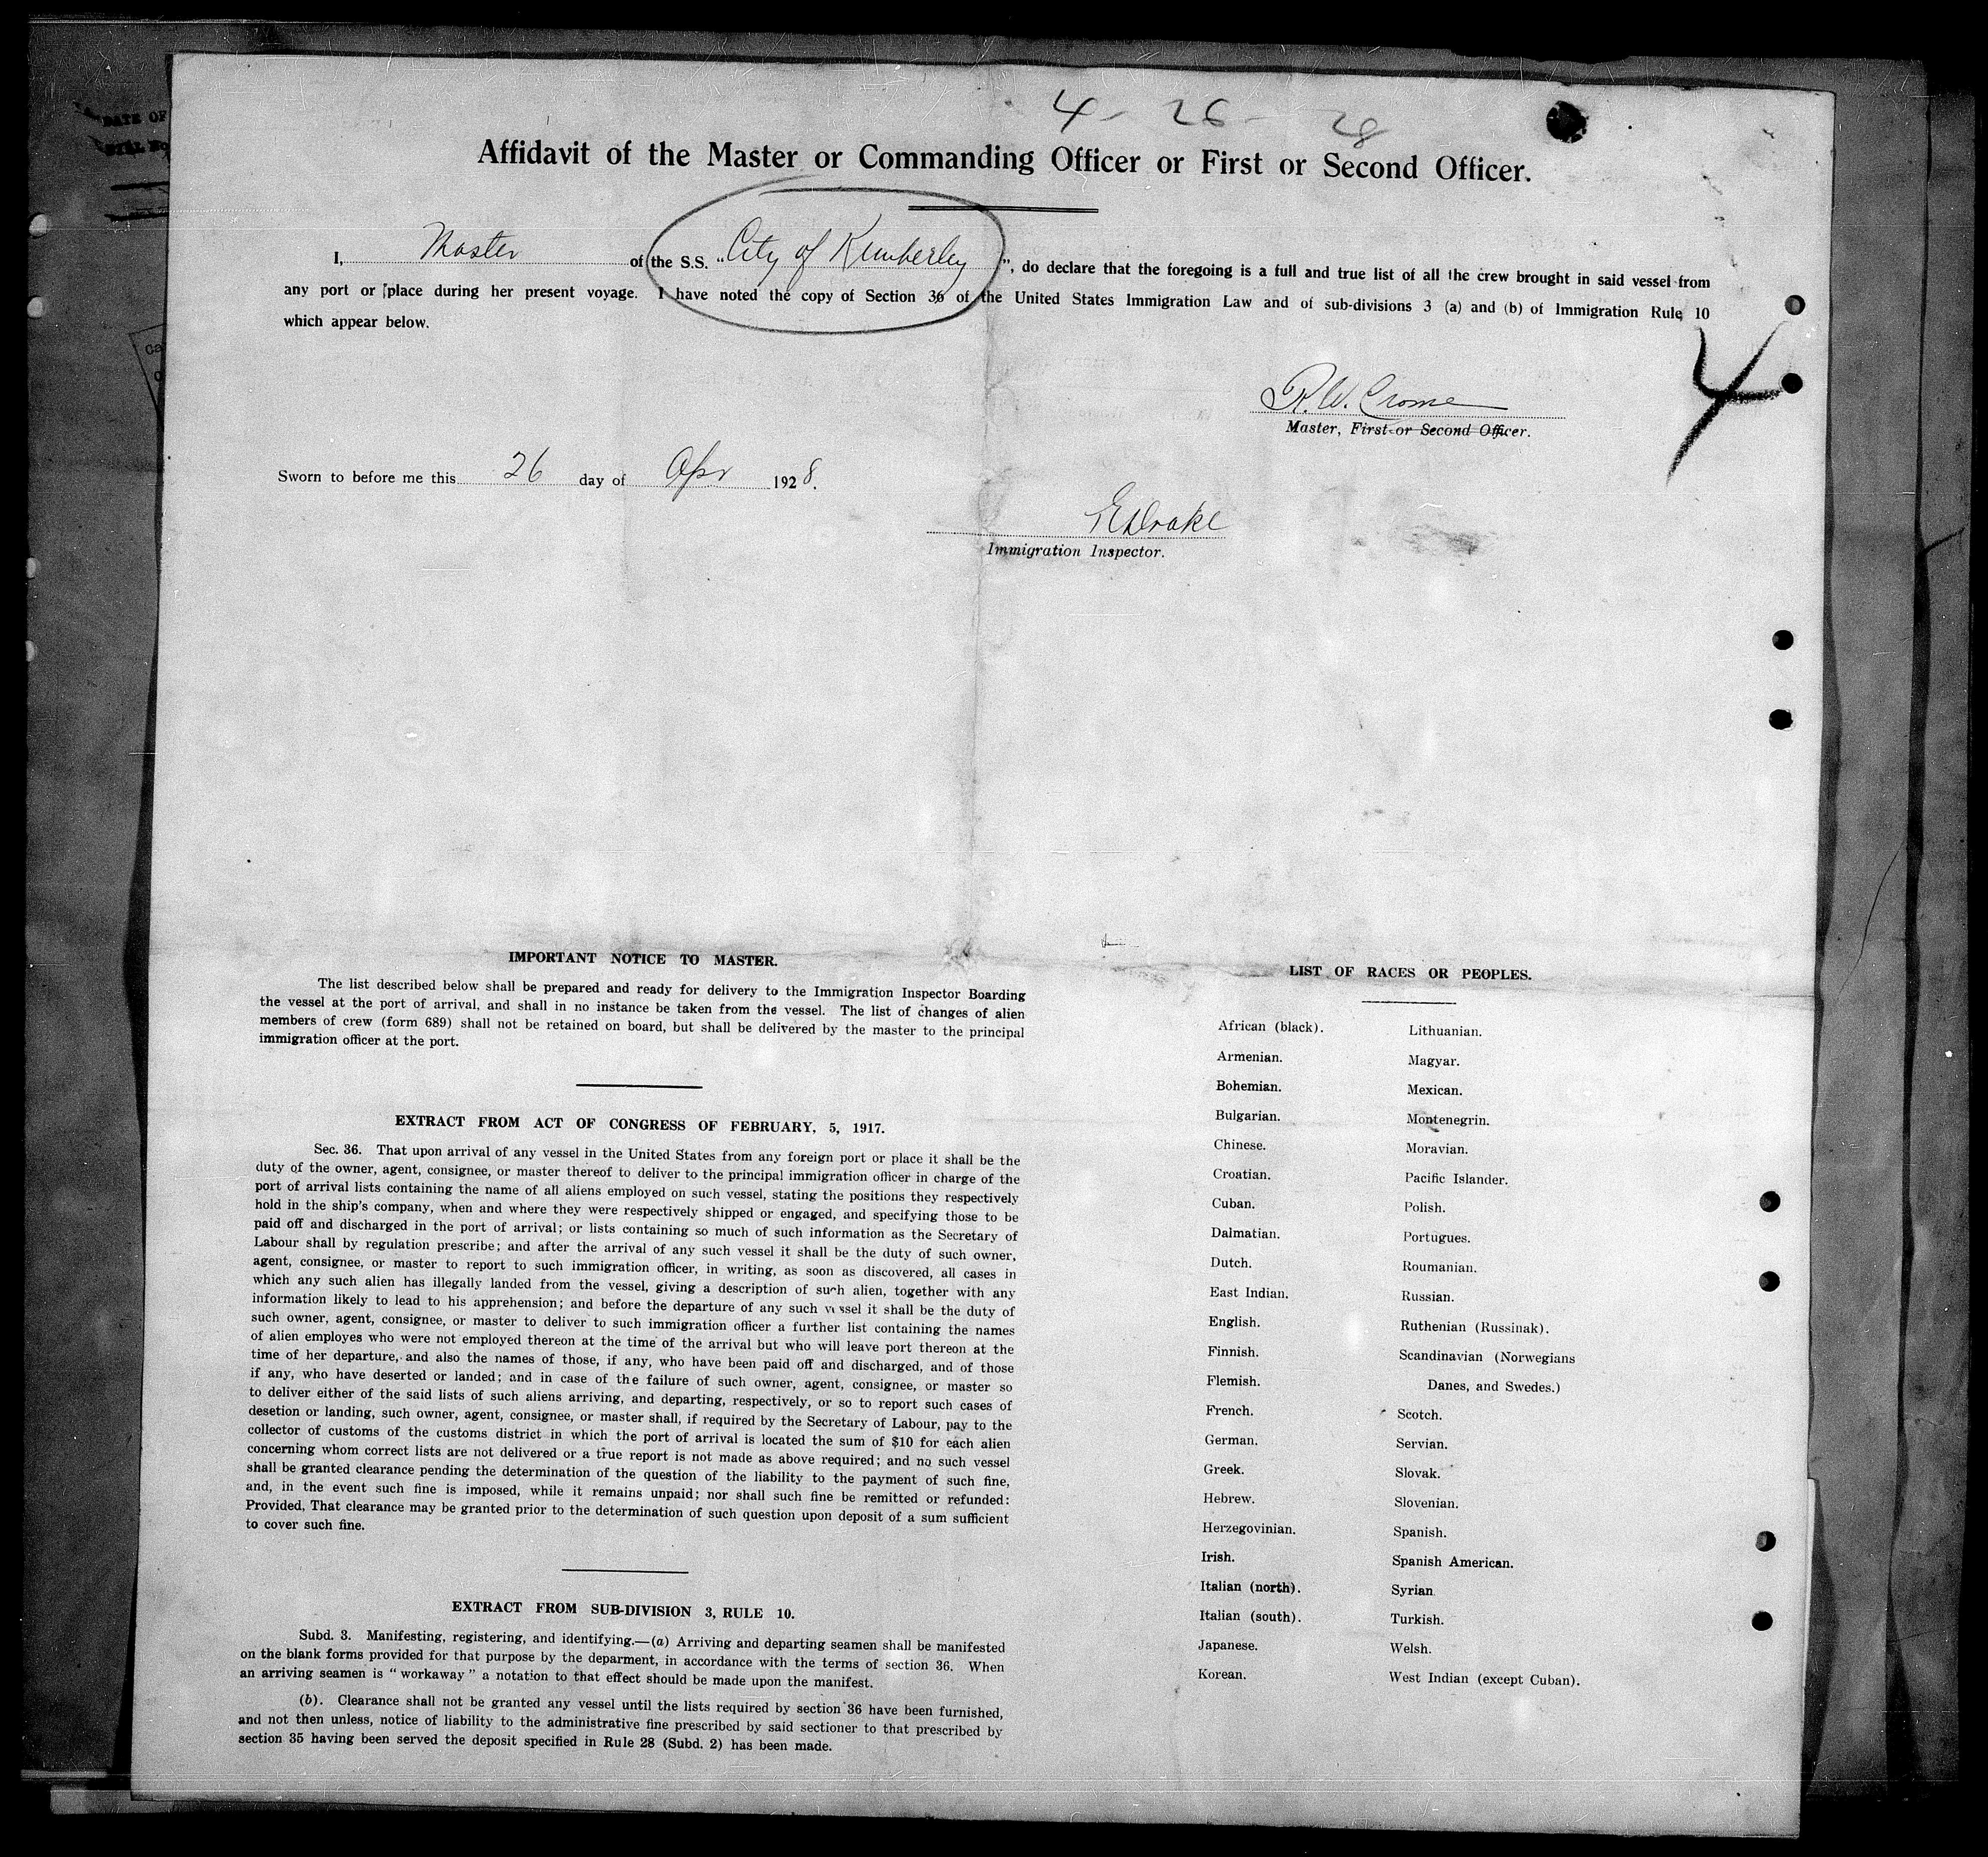 4 - 26 - 28
Affidavit of the Master or Commanding Officer or First or Second Officer.
I, Master of the S.S. "City of Kimberley", do declare that the foregoing is a full and true list of all the crew brought in said vessel from
any port or place during her present voyage. I have noted the copy of Section 36 of the United States Immigration Law and of sub-divisions 3 (a) and (b) of Immigration Rule 10
which appear below.
4
R.W. Crome
Master, First or Second Officer.
Sworn to before me this 26 day of Apr 1928.
E Drake
Immigration Inspector.
IMPORTANT NOTICE TO MASTER.
The list described below shall be prepared and ready for delivery to the Immigration Inspector Boarding
the vessel at the port of arrival, and shall in no instance be taken from the vessel. The list of changes of alien
members of crew (form 689) shall not be retained on board, but shall be delivered by the master to the principal
immigration officer at the port.
EXTRACT FROM ACT OF CONGRESS OF FEBRUARY, 5, 1917.
Sec. 36. That upon arrival of any vessel in the United States from any foreign port or place it shall be the
duty of the owner, agent, consignee, or master thereof to deliver to the principal immigration officer in charge of the
port of arrival lists containing the name of all aliens employed on such vessel, stating the positions they respectively
hold in the ship's company, when and where they were respectively shipped or engaged, and specifying those to be
paid off and discharged in the port of arrival; or lists containing so much of such information as the Secretary of
Labour shall by regulation prescribe; and after the arrival of any such vessel it shall be the duty of such owner,
agent, consignee, or master to report to such immigration officer, in writing, as soon as discovered, all cases in
which any such alien has illegally landed from the vessel, giving a description of such alien, together with any
information likely to lead to his apprehension; and before the departure of any such vessel it shall be the duty of
such owner, agent, consignee, or master to deliver to such immigration officer a further list containing the names
of alien employes who were not employed thereon at the time of the arrival but who will leave port thereon at the
time of her departure, and also the names of those, if any, who have been paid off and discharged, and of those
if any, who have deserted or landed; and in case of the failure of such owner, agent, consignee, or master so
to deliver either of the said lists of such aliens arriving, and departing, respectively, or so to report such cases of
desetion or landing, such owner, agent, consignee, or master shall, if required by the Secretary of Labour, pay to the
collector of customs of the customs district in which the port of arrival is located the sum of $10 for each alien
concerning whom correct lists are not delivered or a true report is not made as above required; and no such vessel
shall be granted clearance pending the determination of the question of the liability to the payment of such fine,
and, in the event such fine is imposed, while it remains unpaid; nor shall such fine be remitted or refunded:
Provided, That clearance may be granted prior to the determination of such question upon deposit of a sum sufficient
to cover such fine.
EXTRACT FROM SUB-DIVISION 3, RULE 10.
Subd. 3. Manifesting, registering, and identifying.—(a) Arriving and departing seamen shall be manifested
on the blank forms provided for that purpose by the deparment, in accordance with the terms of section 36. When
an arriving seamen is "workaway" a notation to that effect should be made upon the manifest.
(b). Clearance shall not be granted any vessel until the lists required by section 36 have been furnished,
and not then unless, notice of liability to the administrative fine prescribed by said sectioner to that prescribed by
section 35 having been served the deposit specified in Rule 28 (Subd. 2) has been made.
LIST OF RACES OR PEOPLES.
African (black). Lithuanian.
Armenian. Magyar.
Bohemian. Mexican.
Bulgarian. Montenegrin.
Chinese. Moravian.
Croatian. Pacific Islander.
Cuban. Polish.
Dalmatian. Portugues.
Dutch. Roumanian.
East Indian. Russian.
English. Ruthenian (Russinak).
Finnish. Scandinavian (Norwegians
Flemish. Danes, and Swedes.)
French. Scotch.
German. Servian.
Greek. Slovak.
Hebrew. Slovenian.
Herzegovinian. Spanish.
Irish. Spanish American.
Italian (north). Syrian
Italian (south). Turkish.
Japanese. Welsh.
Korean. West Indian (except Cuban).
DATE OF